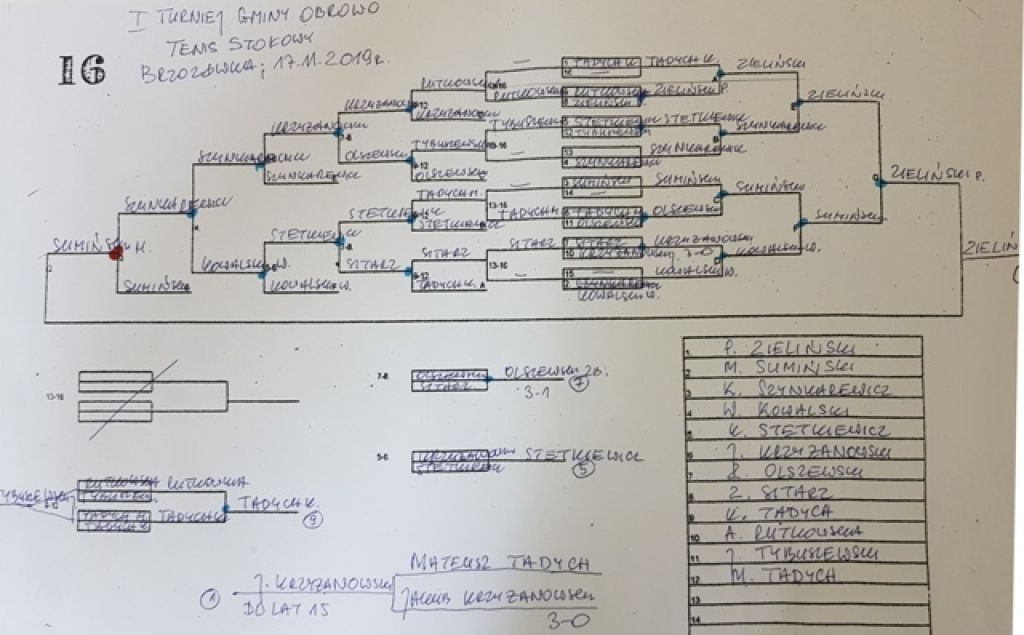 I TURNIEJ GMINY OBROWO
TENIS STOŁOWY
BRZOZÓWKA; 17.11.2019r.
16
TADYCH K. TADYCH K. ZIELIŃSKI
RUTKOWSKA
RUTKOWSKA RUTKOWSKA ZIELIŃSKI P. ZIELIŃSKI
ZIELIŃSKI
KRZYŻANOWSKI KRZYŻANOWSKI
TYBUSZEWSKI STETKIEWICZ STETKIEWICZ
KRZYŻANOWSKI TYBUSZEWSKI SZYNKAREWICZ
OLSZEWSKI TYBUSZEWSKI 13-16
SZYNKAREWICZ SZYNKAREWICZ SZYNKAREWICZ
SZYNKAREWICZ OLSZEWSKI ZIELIŃSKI P.
TADYCH M. SUMIŃSKI SUMIŃSKI SUMIŃSKI
13-16
SZYNKAREWICZ STETKIEWICZ STETKIEWICZ TADYCH M. TADYCH M. OLSZEWSKI SUMIŃSKI
OLSZEWSKI
STETKIEWICZ SITARZ SITARZ KRZYŻANOWSKI
SUMIŃSKI M. KRZYŻANOWSKI 3-0 KOWALSKI W. ZIELIŃ
KOWALSKI W. SITARZ 13-16 KOWALSKI W.
SUMIŃSKI KOWALSKI W. TADYCH K. SZYNKAREWICZ
KOWALSKI W.
13-16
7-8 OLSZEWSKI OLSZEWSKI ZB. 7
SITARZ 3-1
5-6 KRZYŻANOWSKI STETKIEWICZ
STETKIEWICZ 5
RUTKOWSKA RUTKOWSKA
TYBUSZEWSKI
TADYCH M. TADYCH K. TADYCH K. 9
TADYCH K.
1 P. ZIELIŃSKI
2 M. SUMIŃSKI
3 K. SZYNKAREWICZ
4 W. KOWALSKI
5 K. STETKIEWICZ
6 J. KRZYŻANOWSKI
7 Z. OLSZEWSKI
8 Z. SITARZ
9 K. TADYCH
10 A. RUTKOWSKA
11 J. TYBUSZEWSKI
12 M. TADYCH
13
14
MATEUSZ TADYCH
1 J. KRZYŻANOWSKI
DO LAT 15 JAKUB KRZYŻANOWSKI
3-0